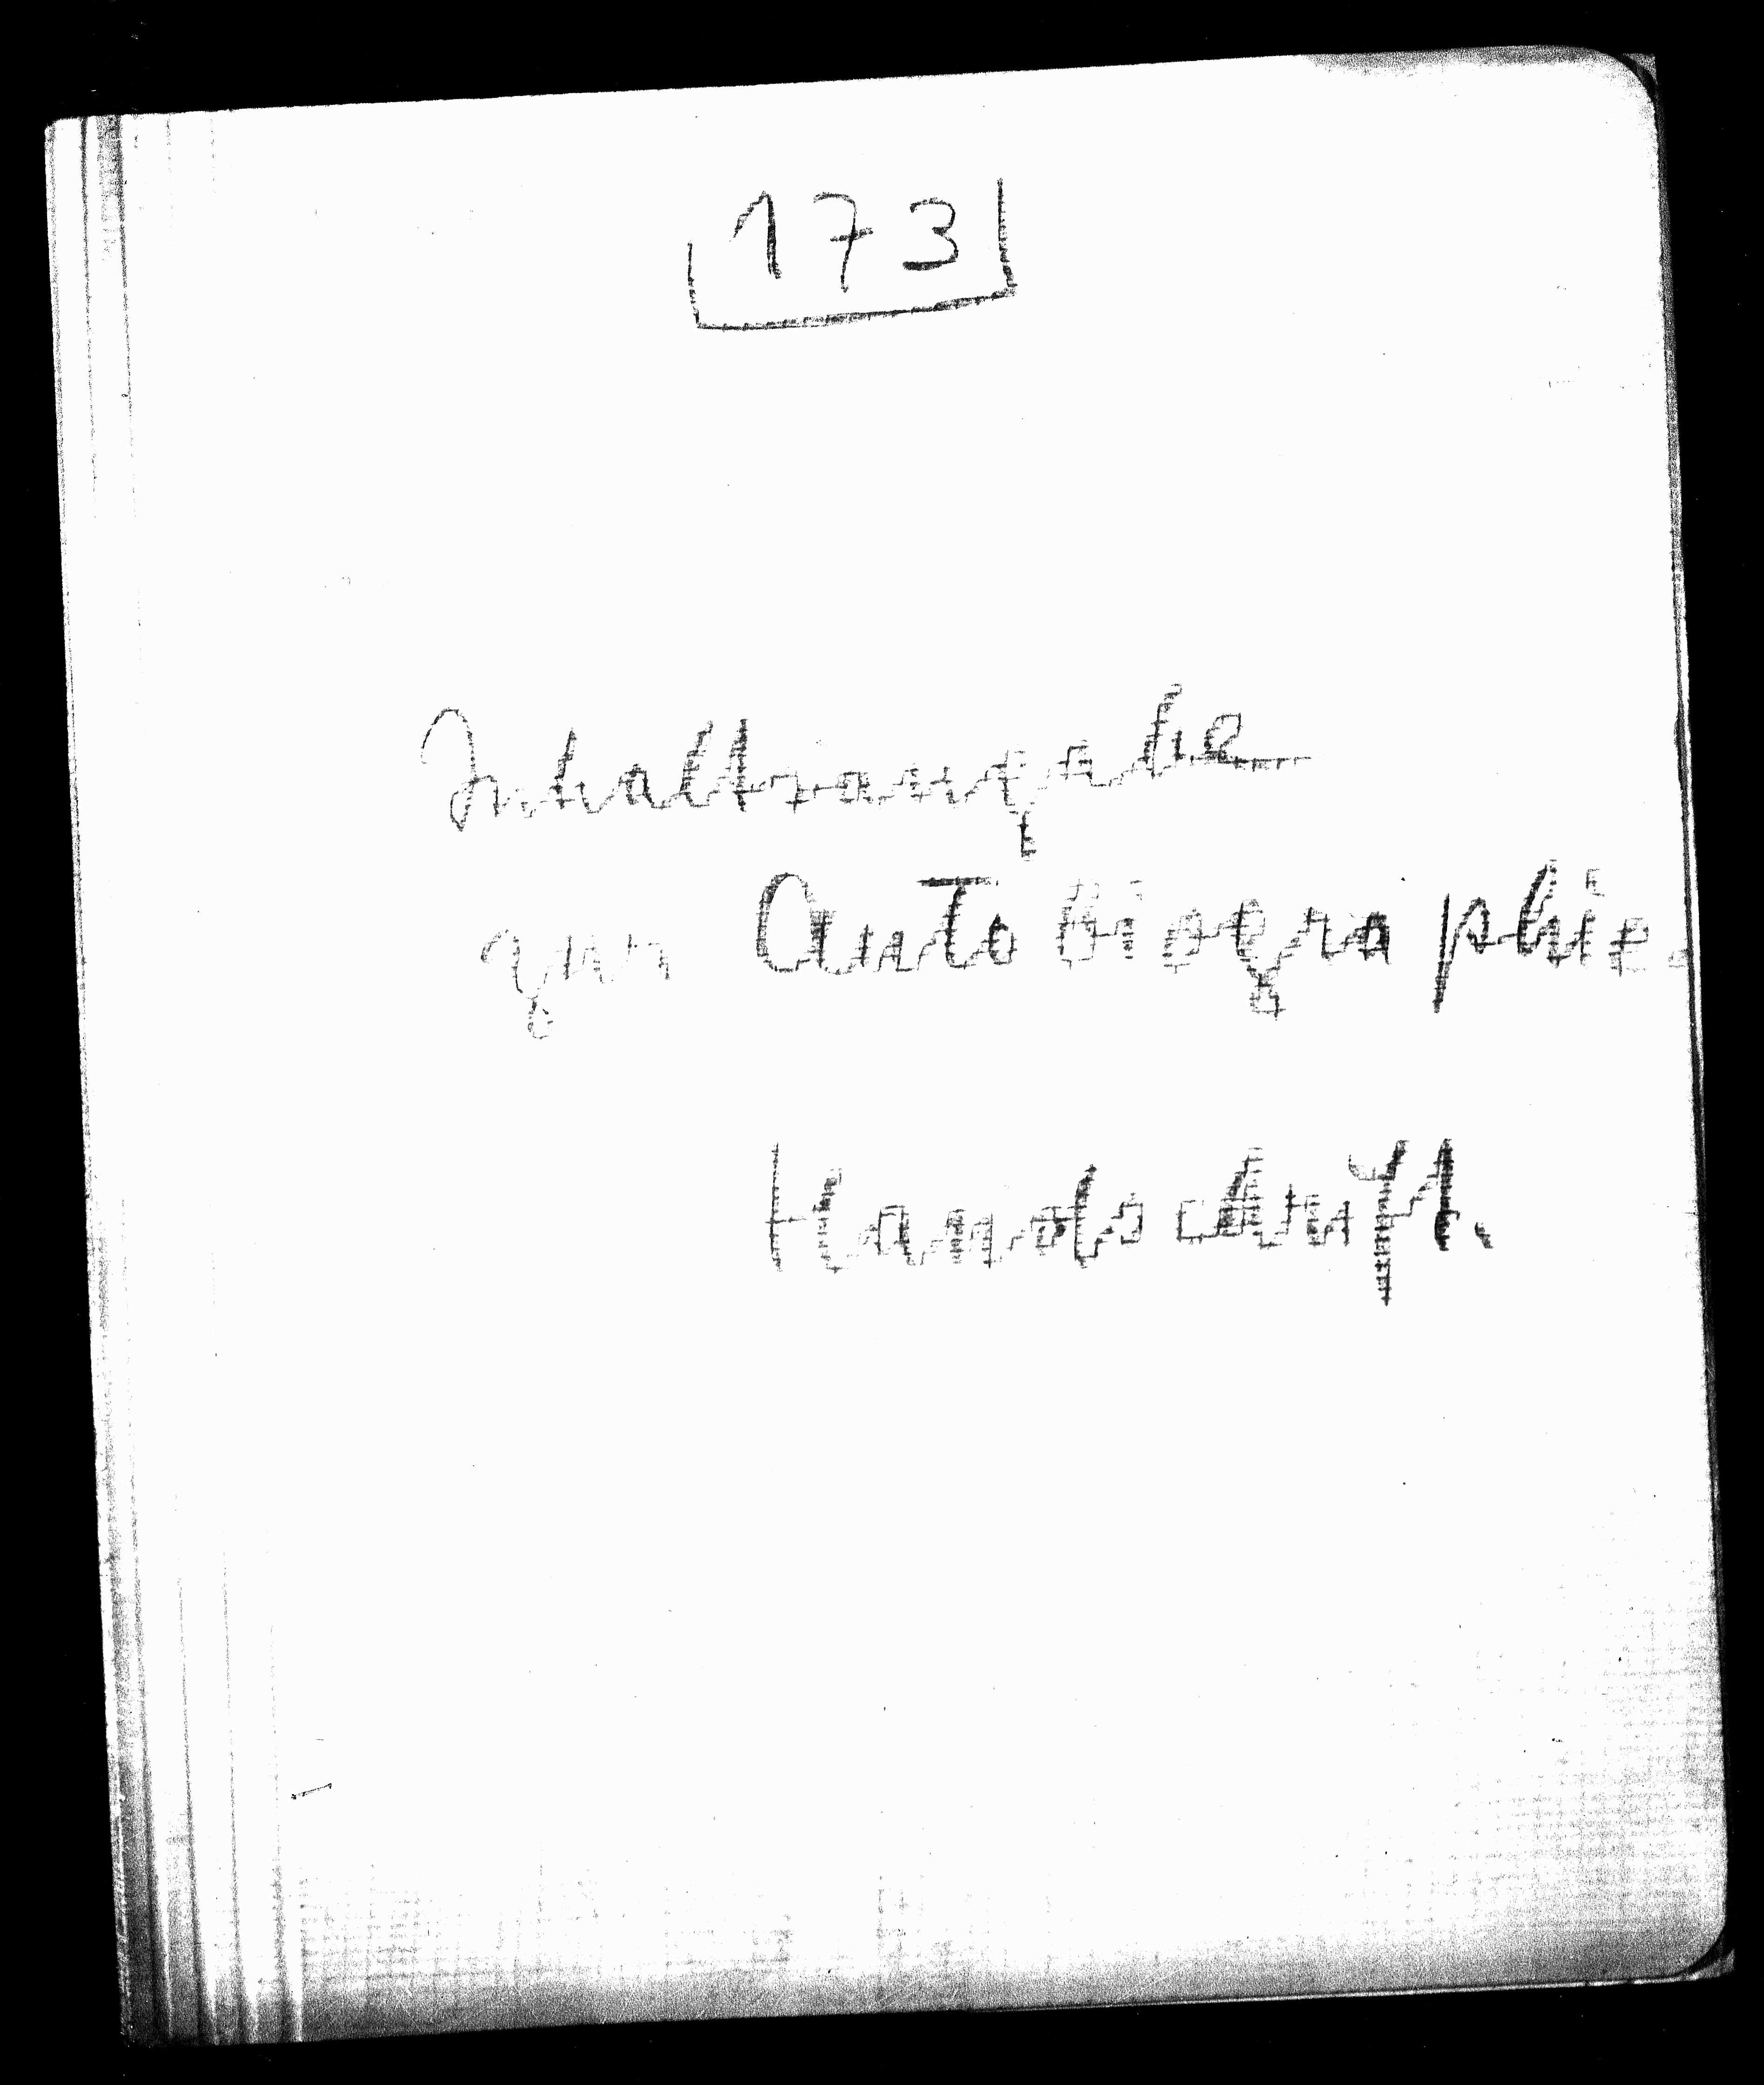 173
Inhaltsangabe
zur Autobiographie.
Handschrift.